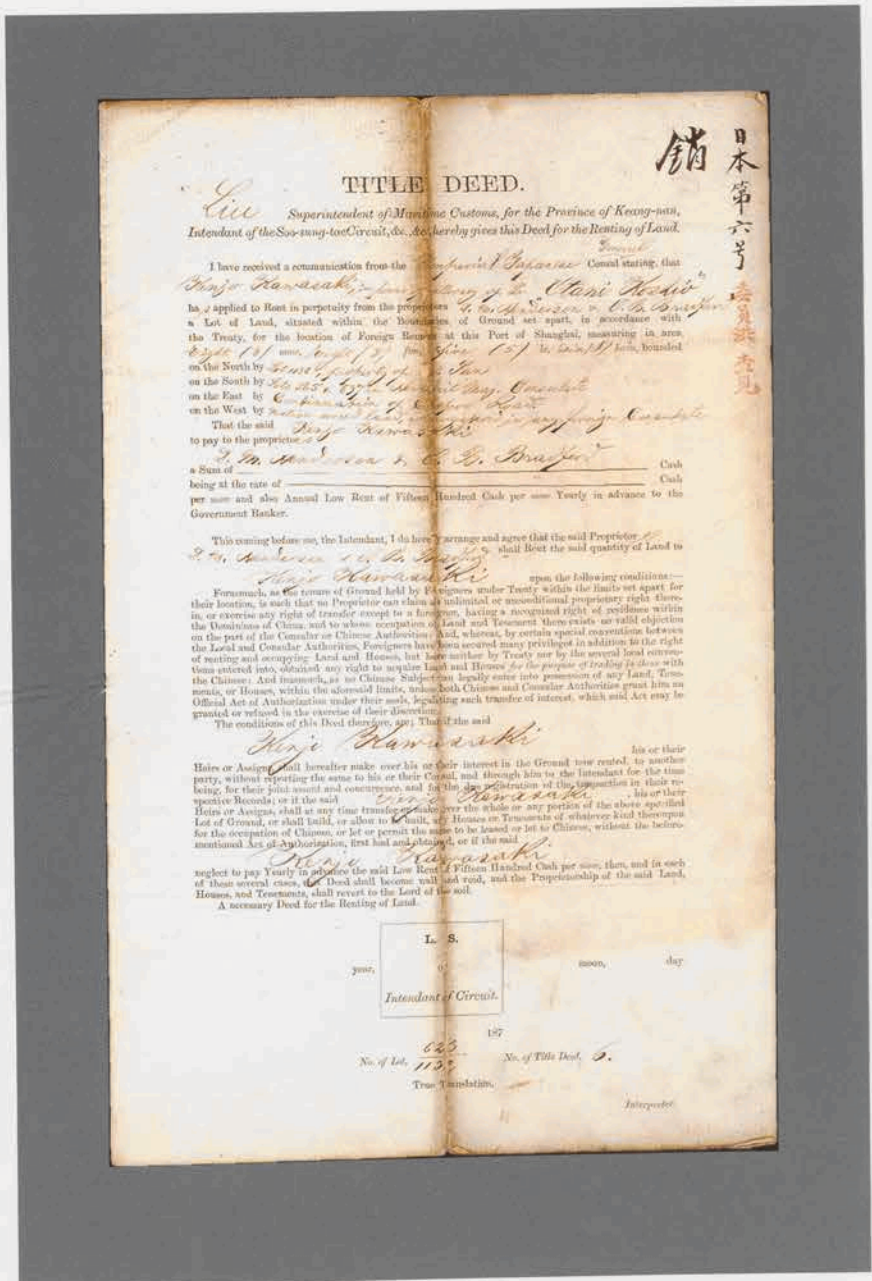 銷
日本第六号
TITLE DEED.
Liu Superintendent of Maritime Customs, for the Province of Keang-nan,
Intendant of the Soo-sung-tae Circuit, &c., &c., hereby gives this Deed for the Renting of Land.
General
I have received a communication from the Imperial Japanese Consul stating, that
Kenjo Kawasaki, of the "Otani Kosdio"
has applied to Rent in perpetuity from the proprietors
a Lot of Land, situated within the Boundaries of Ground set apart, in accordance with
the Treaty, for the location of Foreign Renters at this Port of Shanghai, measuring in area
eight (8) mow, (8) fun, five (5) le, (8) haou, bounded
on the North by Lot property of
on the South by Lot Consulate
on the East by Continuation of Road
on the West by land, foreign Consulate
That the said Kenjo Kawasaki
to pay to the proprietors
D. M. Henderson & C. B. Bradford
a Sum of Cash
being at the rate of Cash
per mow and also Annual Low Rent of Fifteen Hundred Cash per mow Yearly in advance to the
Government Banker.
This coming before me, the Intendant, I do hereby arrange and agree that the said Proprietor
D. M. Henderson & C. B. Bradford shall Rent the said quantity of Land to
Kenjo Kawasaki upon the following conditions:—
Forasmuch, as the tenure of Ground held by Foreigners under Treaty within the limits set apart for
their location, is such that no Proprietor can claim an unlimited or unconditional proprietary right there-
in, or exercise any right of transfer except to a foreigner, having a recognized right of residence within
the Dominions of China, and to whose occupation of Land and Tenement there exists no valid objection
on the part of the Consular or Chinese Authorities: And, whereas, by certain special conventions between
the Local and Consular Authorities, Foreigners have been secured many privileges in addition to the right
of renting and occupying Land and Houses, but have neither by Treaty nor by the several local conven-
tions entered into, obtained any right to acquire Land and Houses for the purpose of trading in them with
the Chinese: And inasmuch, as no Chinese Subject can legally enter into possession of any Land, Tene-
ments, or Houses, within the aforesaid limits, unless both Chinese and Consular Authorities grant him an
Official Act of Authorization under their seals, legalizing such transfer of interest, which said Act may be
granted or refused in the exercise of their discretion.
The conditions of this Deed therefore, are; That if the said
Kenjo Kawasaki his or their
Heirs or Assigns, shall hereafter make over his or their interest in the Ground now rented, to another
party, without reporting the same to his or their Consul, and through him to the Intendant for the time
being, for their joint assent and concurrence, and for the due registration of the transaction in their re-
spective Records; or if the said Kenjo Kawasaki, his or their
Heirs or Assigns, shall at any time transfer or make over the whole or any portion of the above specified
Lot of Ground, or shall build, or allow to be built, any Houses or Tenements of whatever kind thereupon
for the occupation of Chinese, or let or permit the same to be leased or let to Chinese, without the before-
mentioned Act of Authorization, first had and obtained, or if the said
Kenjo Kawasaki
neglect to pay Yearly in advance the said Low Rent of Fifteen Hundred Cash per mow, then, and in each
of these several cases, this Deed shall become null and void, and the Proprietorship of the said Land,
Houses, and Tenements, shall revert to the Lord of the soil.
A necessary Deed for the Renting of Land.
L. S.
of
Intendant of Circuit.
year, moon, day
187
No. of Lot. 623 No. of Title Deed. 6.
True Translation.
Interpreter.